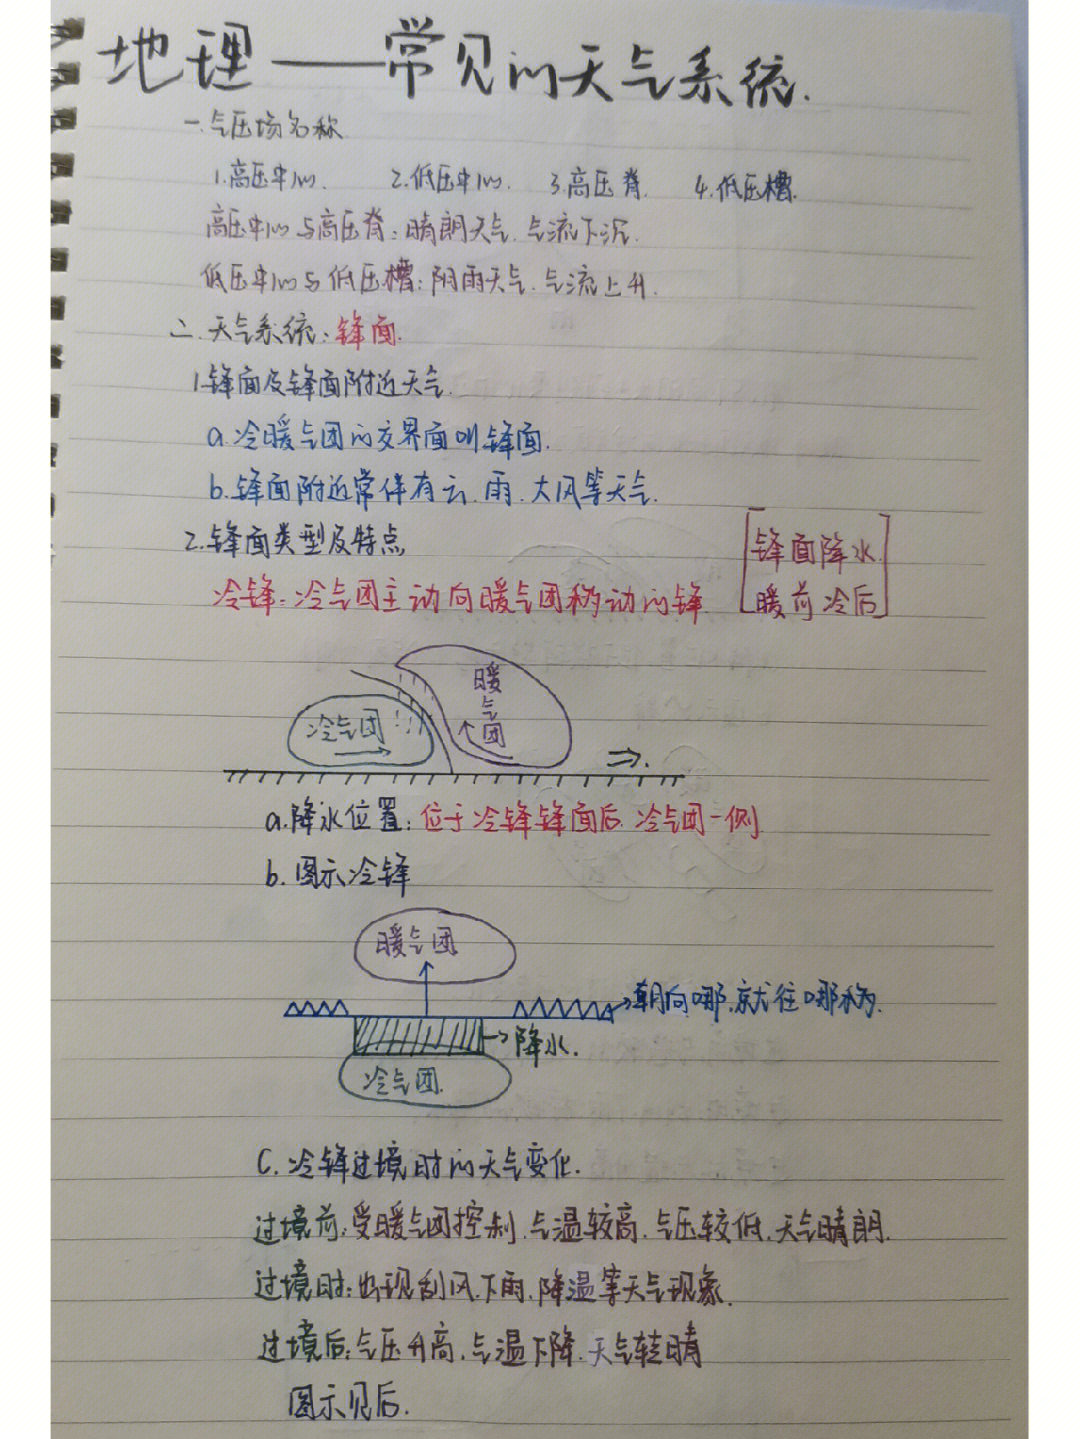 地理——常见的天气系统.
一.气压场名称
1.高压中心. 2.低压中心. 3.高压脊. 4.低压槽.
高压中心与高压脊:晴朗天气.气流下沉.
低压中心与低压槽:阴雨天气.气流上升.
二.天气系统:锋面.
1.锋面及锋面附近天气.
a.冷暖气团的交界面叫锋面.
b.锋面附近常伴有云、雨、大风等天气.
2.锋面类型及特点
锋面降水.
暖前冷后
冷锋:冷气团主动向暖气团移动的锋.
暖气团
冷气团
a.降水位置:位于冷锋锋面后.冷气团一侧
b.图示冷锋
暖气团
朝向哪.就往哪移.
降水.
冷气团.
C.冷锋过境时的天气变化.
过境前:受暖气团控制.气温较高.气压较低.天气晴朗.
过境时:出现刮风.下雨.降温等天气现象.
过境后:气压升高.气温下降.天气转晴
图示见后.